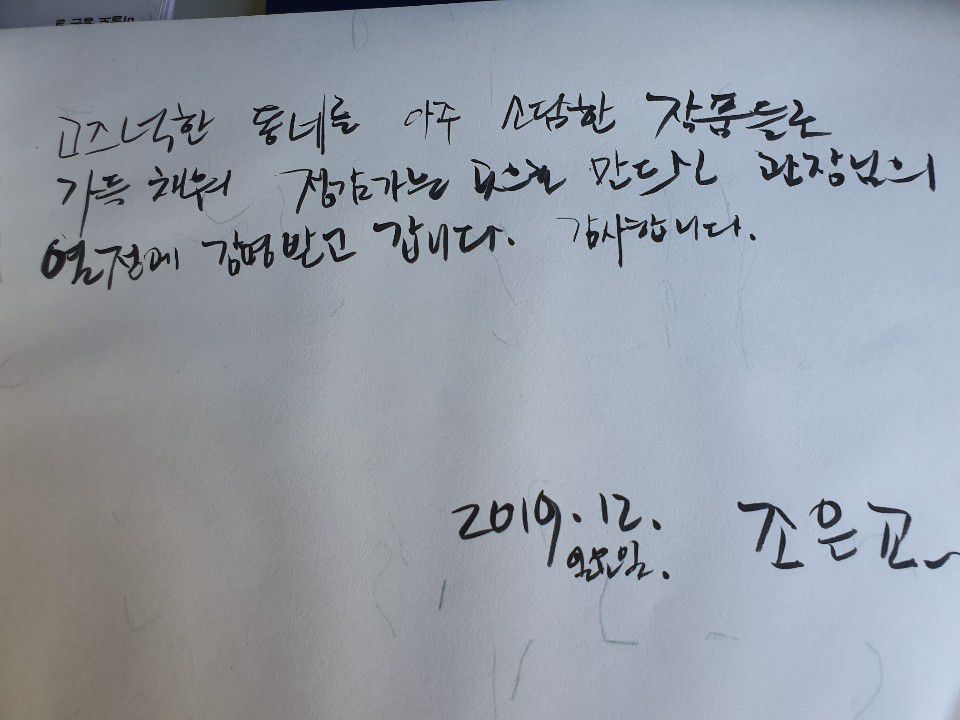 고즈넉한 동네를 아주 소담한 작품들로
가득 채워 정감가는 곳으로 만드신 관장님의
열정에 감명받고 갑니다. 감사합니다.
2019. 12. 조은교
일요일.